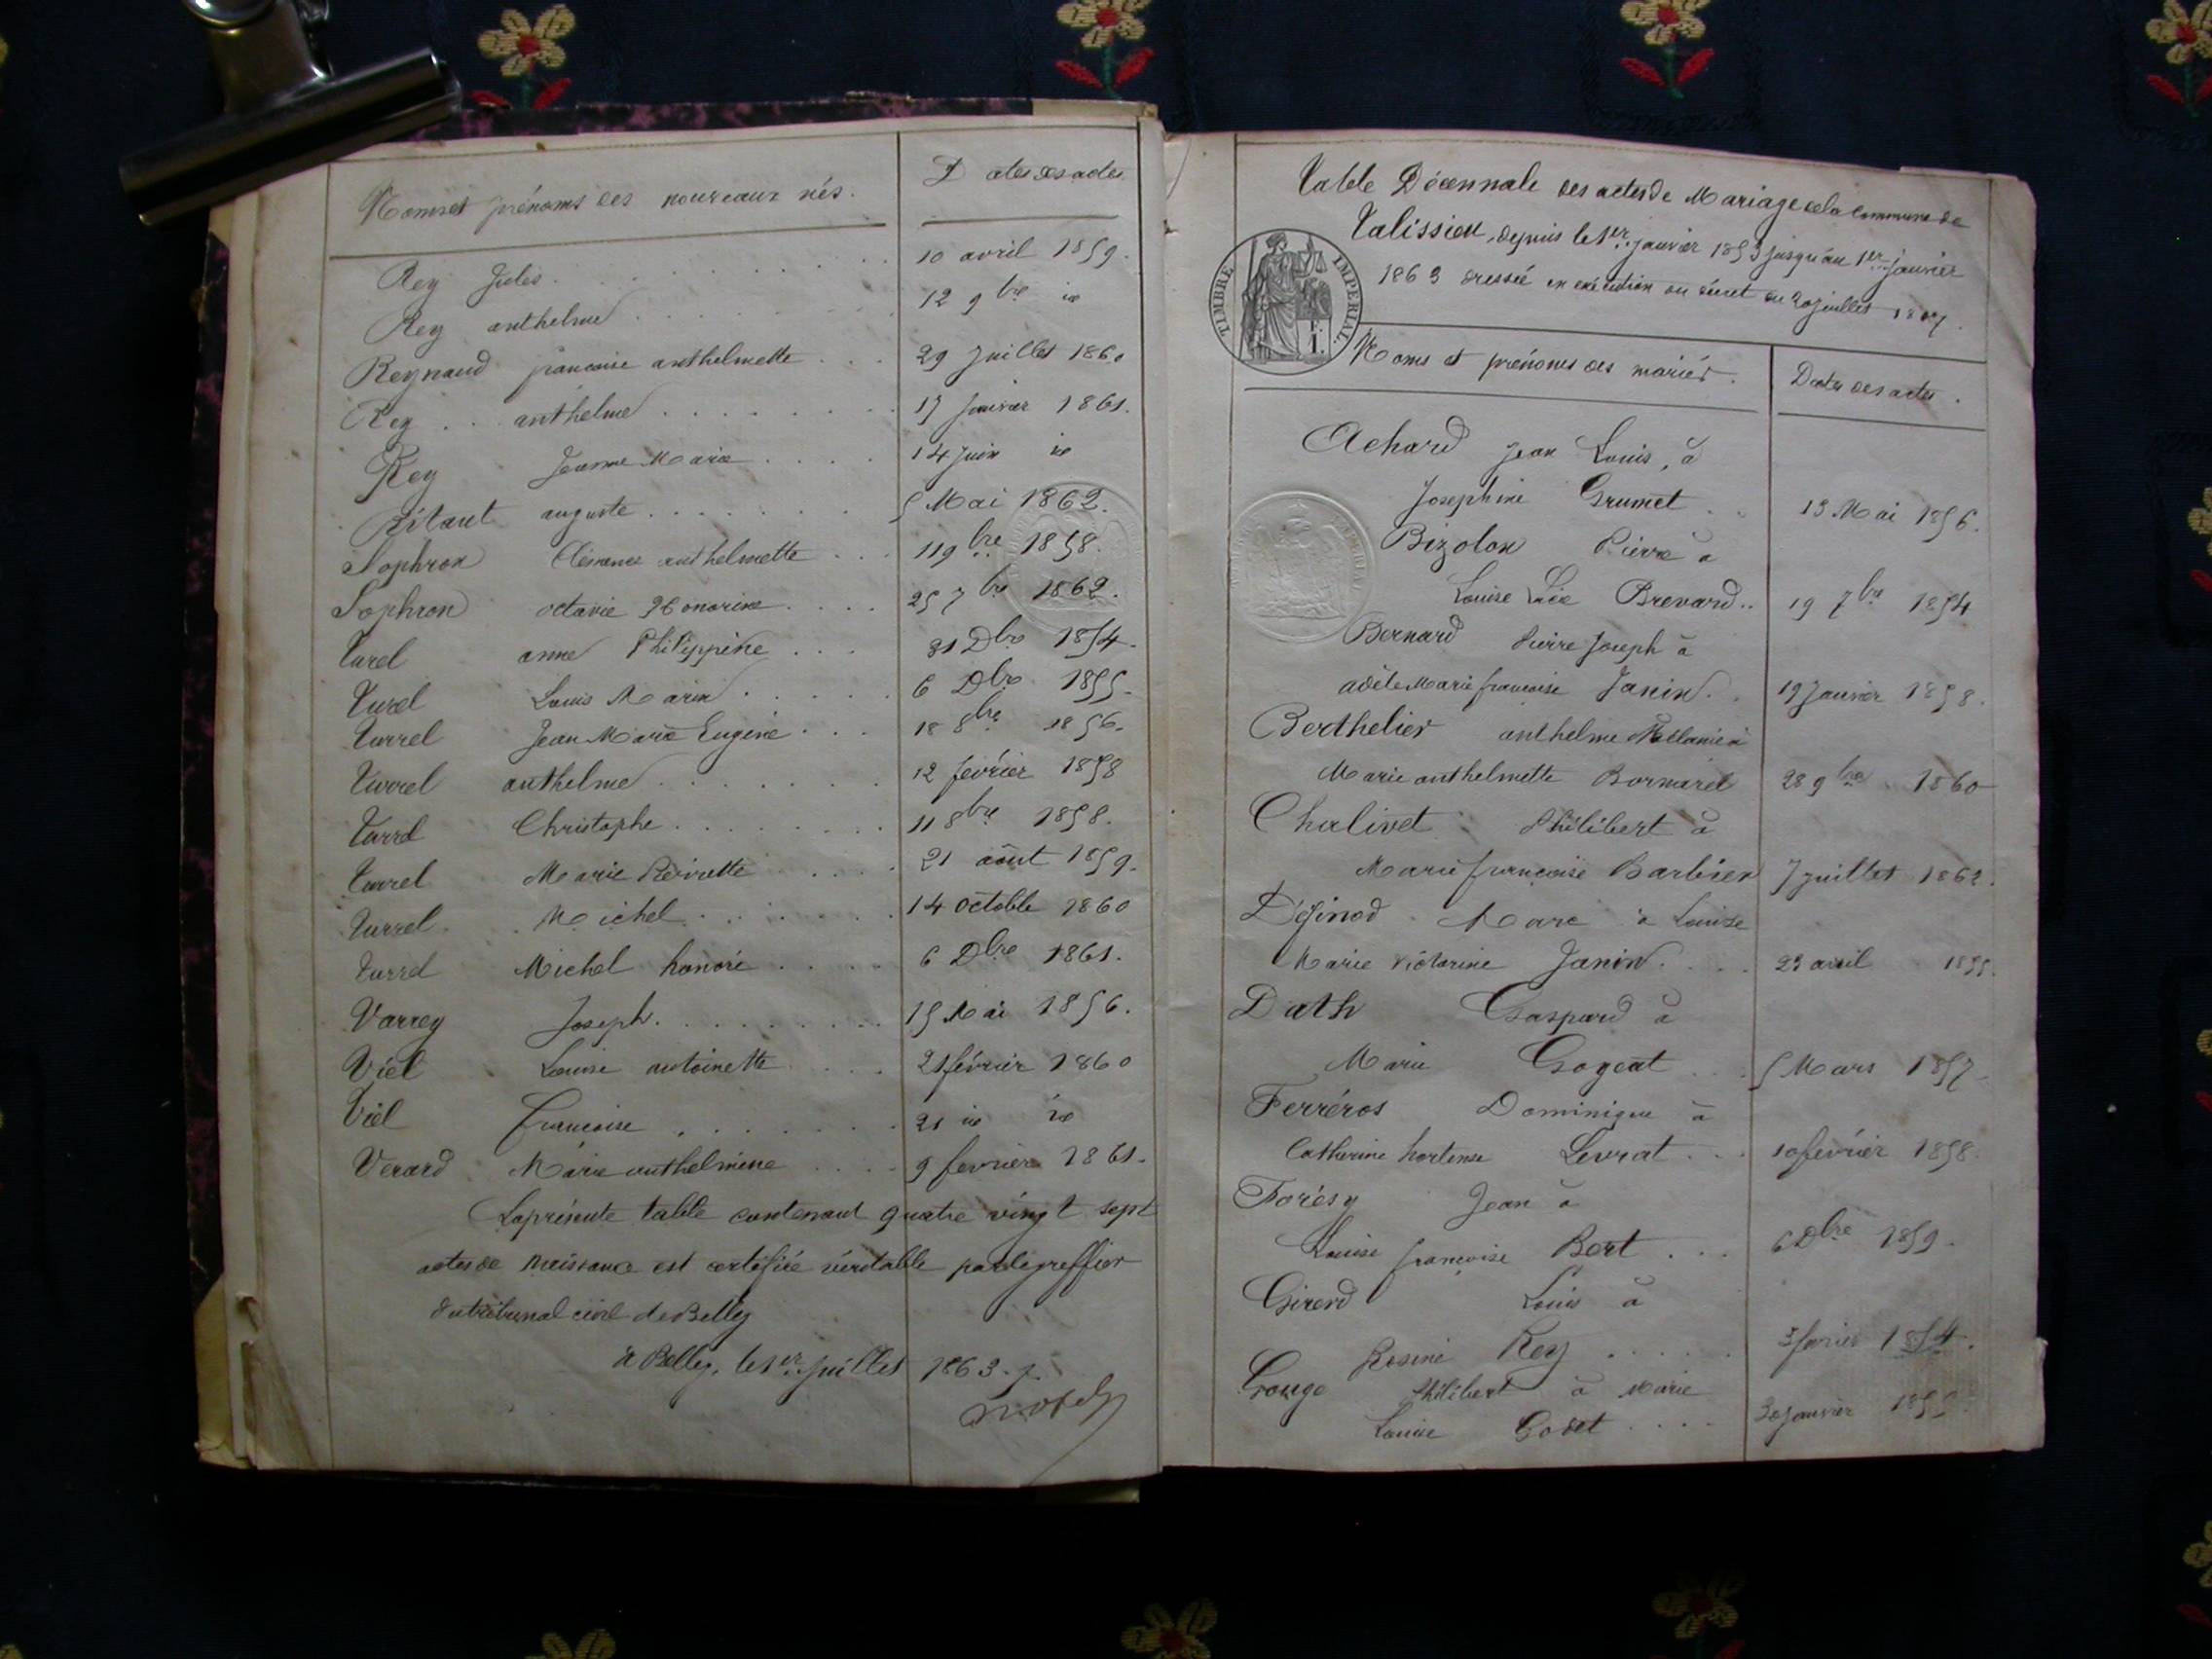 Noms et prénoms des nouveaux nés.
Dates des actes
Rey Jules . . . . . . . . 10 avril 1859.
Rey anthelme . . . . . . . 12 9bre id
Reynaud francoise anthelmette . . . 29 Juillet 1860
Rey . . anthelme . . . . . . . 17 Janvier 1861.
Rey Jeanne Marie . . . . 14 Juin id
Ritaut auguste . . . . . . . 5 Mai 1862.
Sophron Clémence anthelmette . . . 11 9bre 1858.
Sophron octavie Honorine . . . . 25 7bre 1862.
Turel anne Philippine . . . 31 Dbre 1854.
Turel Louis Marin . . . . . 6 Dbre 1855.
Turrel Jean Marie Eugène . . . 18 8bre 1856.
Turrel anthelme . . . . . . . 12 février 1858
Turrel Christophe . . . . . . . 11 8bre 1858.
Turrel Marie Pierrette . . . . 21 août 1859.
Turrel. Michel . . . . . . 14 octobbe 1860
Turrel Michel honoré . . . . 6 Dbre 1861.
Varrey Joseph . . . . . . . . . 15 Mai 1856.
Viel Louise antoinette . . . . 21 février 1860
Viel francoise . . . . . . . 21 id id
Verard Marie anthelmine . . . . 9 fevrier 1861.
La présente table contenant quatre vingt sept
actes de naissance est certifiée véritable par le greffier
du tribunal civil de Belley
à Belley, le 1er Juillet 1863.
Table Décennale des actes de Mariage de la commune de
Talissieu, depuis le 1er janvier 1853 jusqu'au 1er janvier
1863 dressée en exécution du décret du 20 juillet 1807.
TIMBRE IMPERIAL
1 F.
Noms et prénoms des mariés.
Dates des actes.
Achard Jean Louis, à
Josephine Grumet . . 13 Mai 1856.
Bizolon Pierre à
Louise Brevard.. 19 7bre 1854
Bernard Pierre Joseph à
adèle Marie francoise Janin. . 19 Janvier 1858.
Berthelier anthelme à
Marie anthelmette Bornarel 28 9bre 1860
Chalivet Philibert à
Marie françoise Barbier 7 juillet 1862.
Déginod Marc à Louise
Marie Victorine Janin. . . . 23 avril 1855.
Dath Gaspard à
Marie Gogeat . . . 5 Mars 1857
Ferréros Dominique à
Catherine hortense Levrat . . . 10 février 1858.
Forésy Jean à
Louise françoise Bert . . . 6 Dbre 1859.
Girerd Louis à
Rosine Rey . . . . . 1854.
Gouge Philibert à Marie
Louise Godet . . . . 30 janvier 1855.